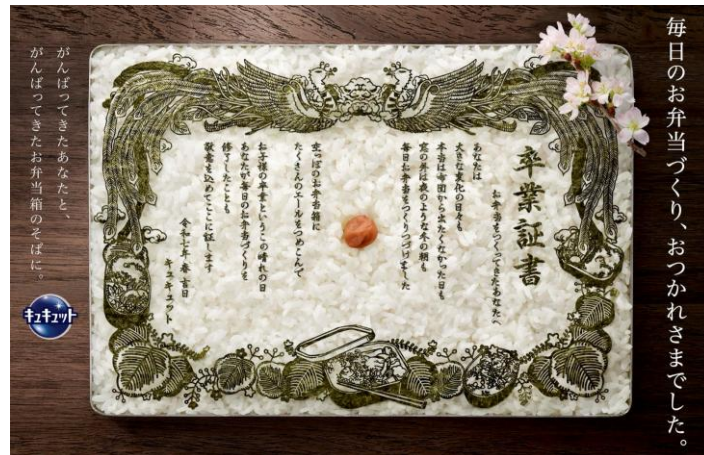 毎日のお弁当づくり、おつかれさまでした。
卒業証書
お弁当をつくってきたあなたへ
あなたは
大きな変化の日々も
本当は布団から出たくなかった日も
窓の外は夜のような冬の朝も
毎日お弁当をつくりつづけました
空っぽのお弁当箱に
たくさんのエールをつめこんで
お子様の卒業というこの晴れの日
あなたが毎日のお弁当づくりを
修了したことも
敬意を込めてここに証します
令和七年 春 吉日
キュキュット
がんばってきたあなたと、
がんばってきたお弁当箱のそばに。
キュキュット